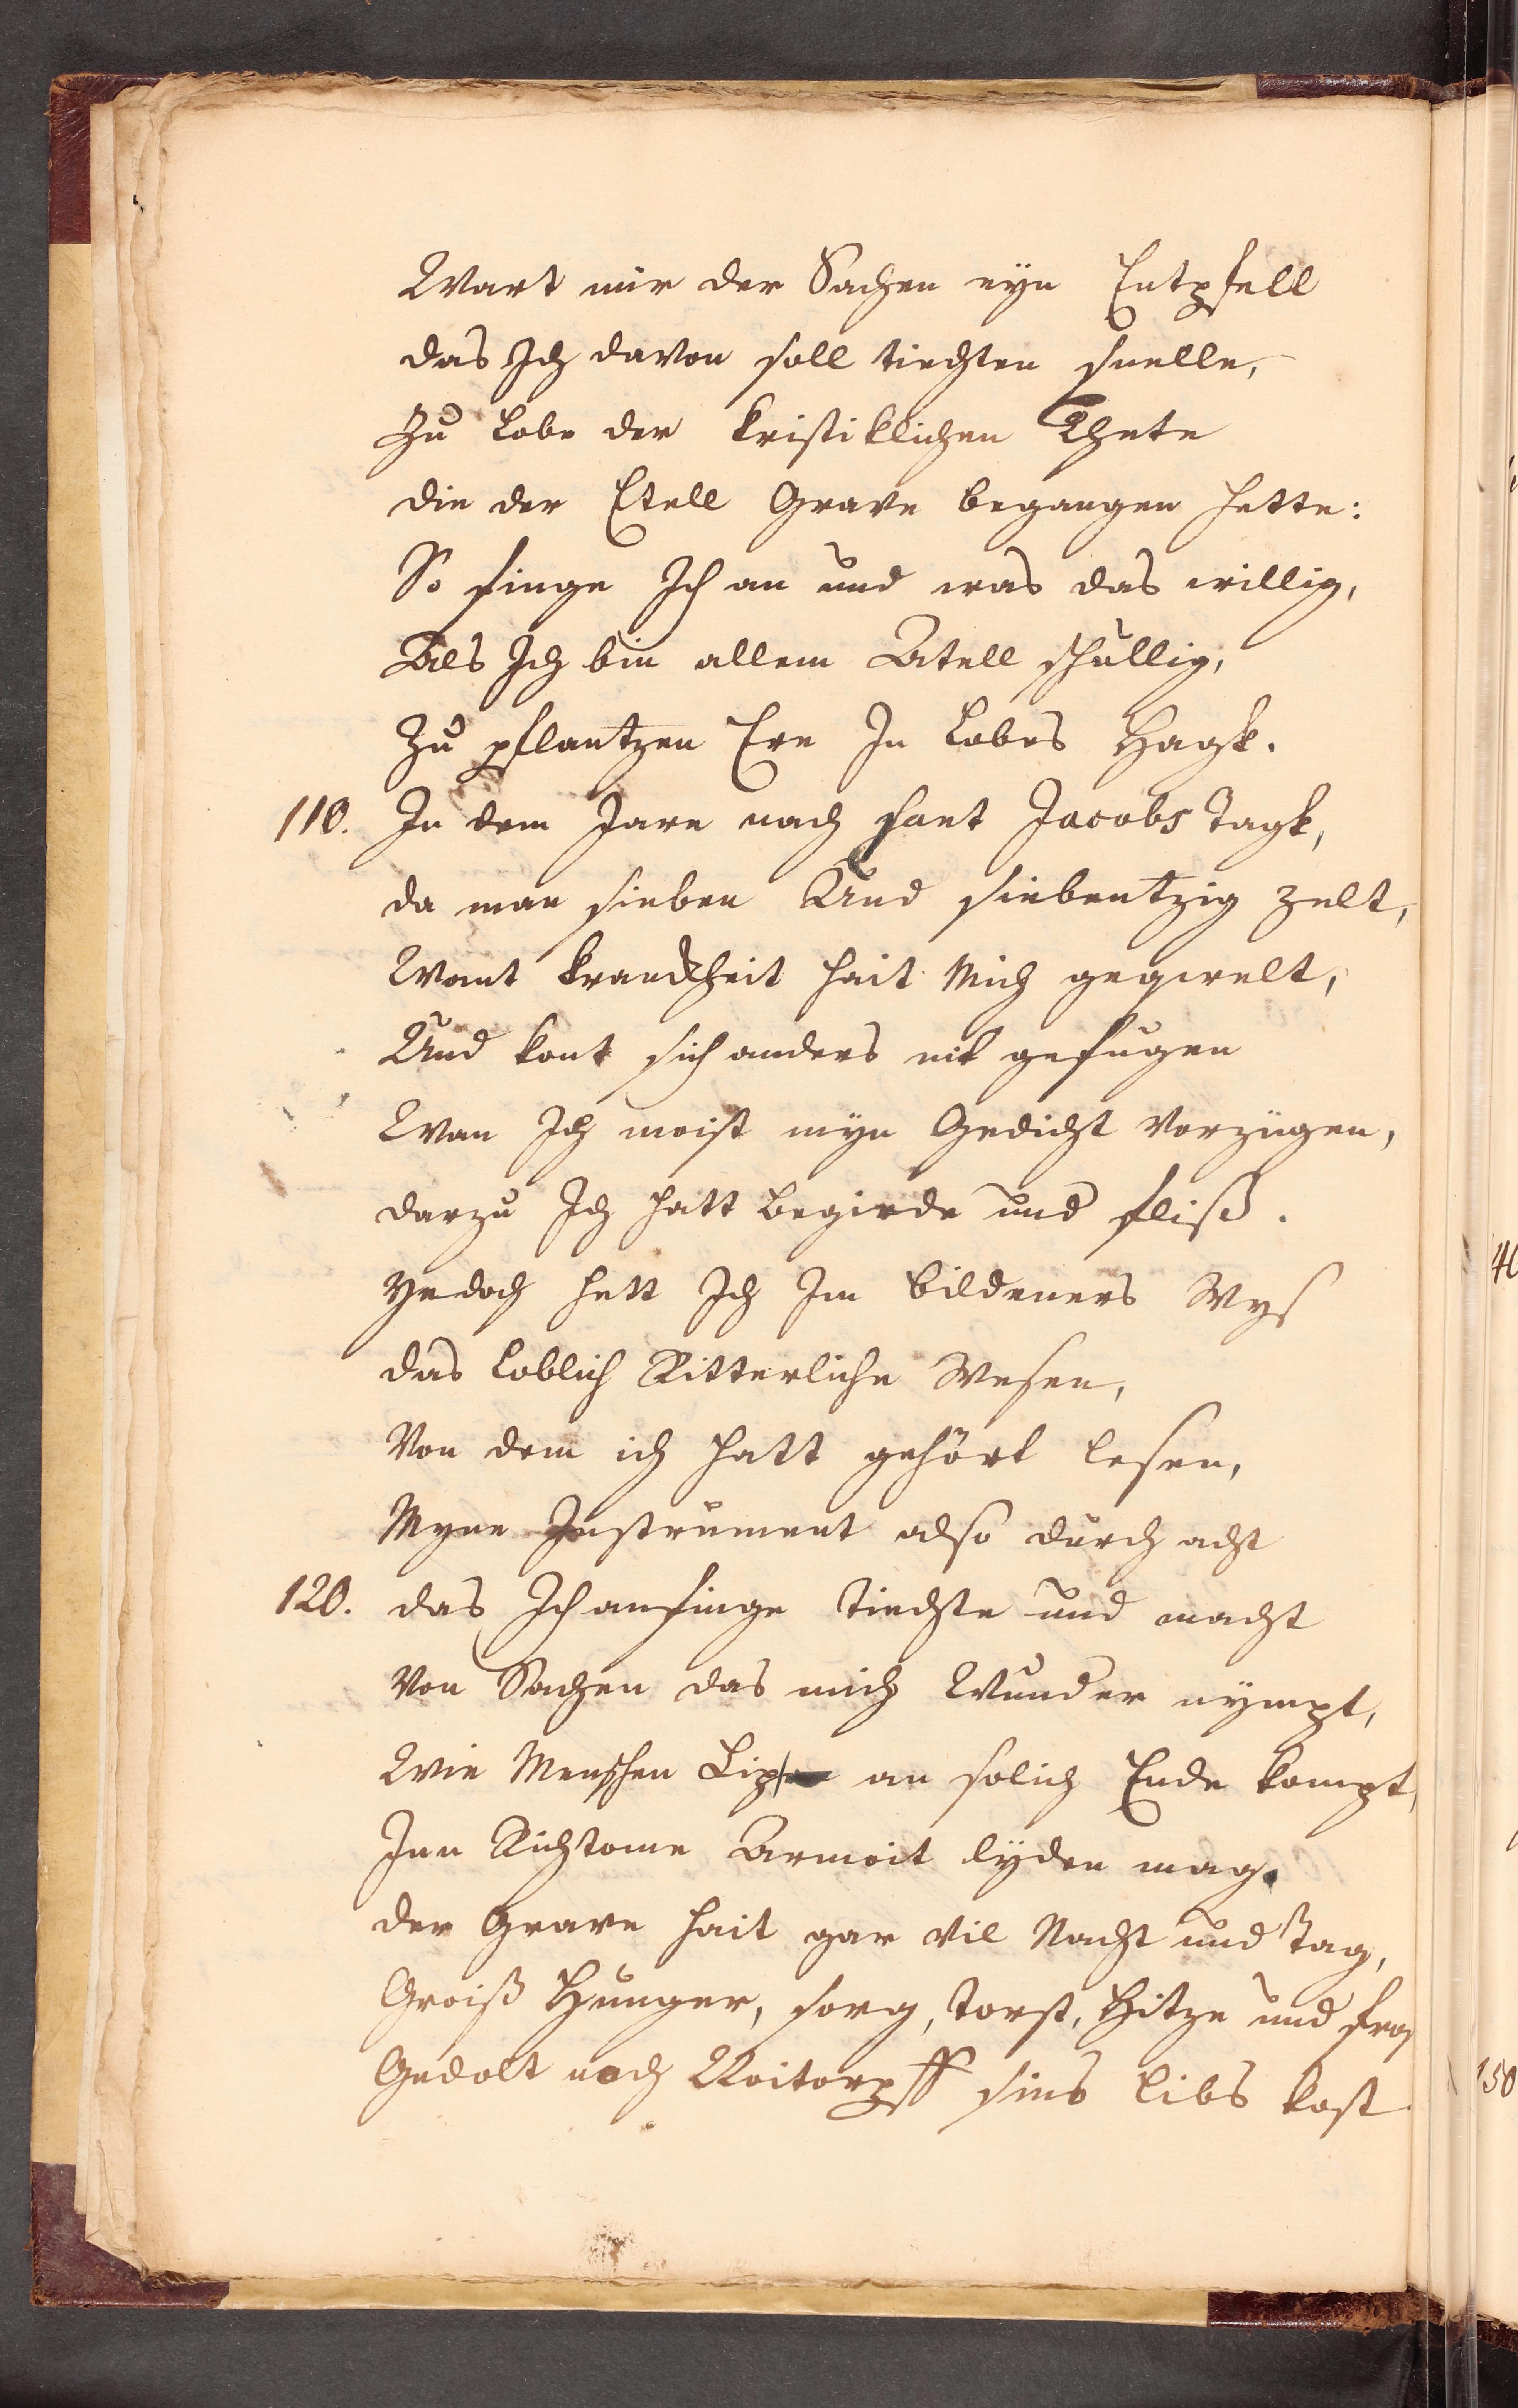 Wart mir der Sachen eyn Entpfell
das Ich davon soll tiechten snelle,
Zu Lobe der kristiklichen Thete
die der Etell Grave begangen hette:
So finge Ich an und was das willig,
Als Ich bin allem Atell schullig,
Zu pflantzen Ere In Lobes Hagk.
110. In dem Jare nach sant Jacobs Tagk,
da man sieben Und siebentzig zelt,
Want kranckheit hait Mich geqwelt,
Und kont sich anders nit gefugen
Wan Ich moist myn Gedicht Vorzugen,
darzu Ich hatt Begirde und fliß.
Yedoch hett Ich Im bildeners Wys
das Loblich Ritterliche Wesen,
Von dem ich hatt gehört lesen,
Myne Instrument also durch acht
120. das Ich anfinge Tiechte und macht
Von Sachen das mich Wunder nympt,
Wie Menschen Lip an solich Ende kompt,
Inn Richtome Armoit lyden mag.
der Grave hait gar vil Nacht und Tag,
Groiß Hunger, sorg, Torst, Hitze und fros
Gedolt noch Noitorpff sins libs kost